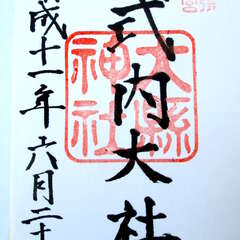 式内大社
大縣
神社
成十一年六月二十